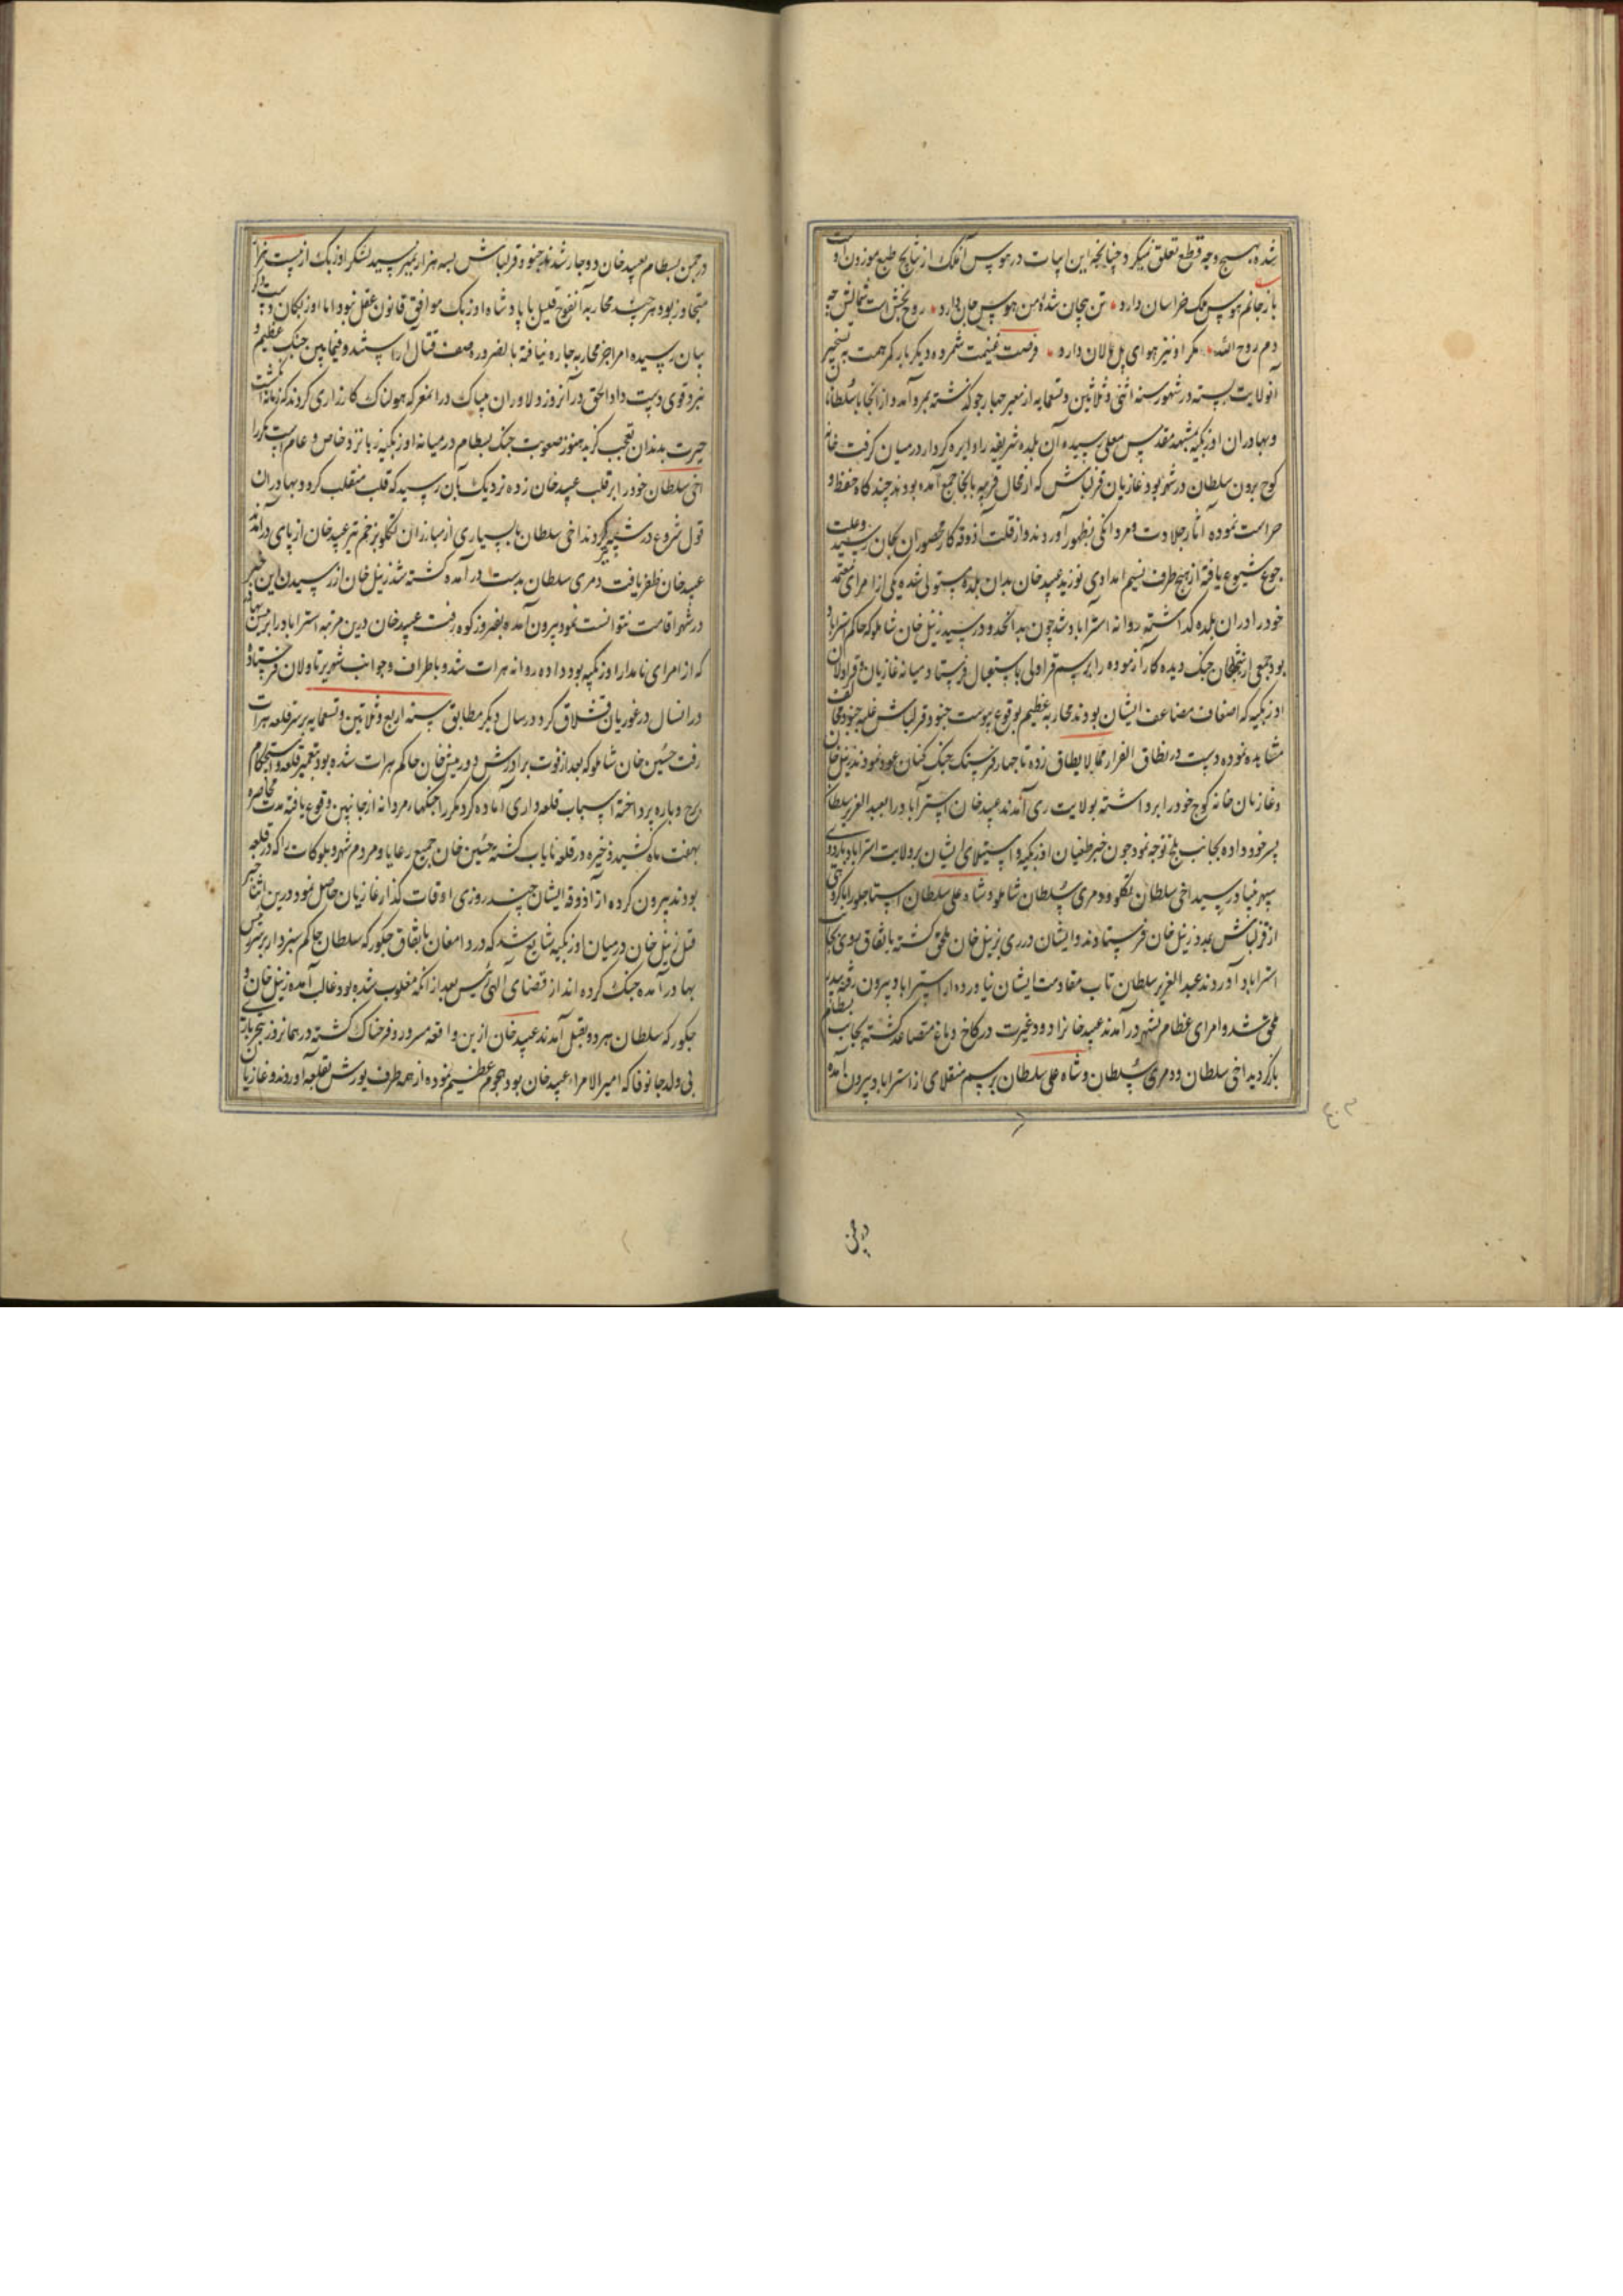 شده بهیچ وجه قطع تعلق نمیکرد چنانچه این ابیات در هوس آنملک از نتایج طبع موزون اوست
باز جانم هوس ملک خراسان دارد تن بیجان شده من هوس جان دارد روح بخش است شمالش چه
دم روح الله مکر او نیز هوای پل مالان دارد فرصت غنیمت شمرده دیکر بار کمر همت به تسخیر
آنولایت بسته در شهور سنه اثنی و ثلاثین و تسعمایه از معبر چهارجو کذشته بمرو آمد و از آنجا با سلطانان
و بهادران اوزبکیه بمشهد مقدس معلی رسیده آن بلده شریفه را دایره کردار در میان کرفت
کوج برون سلطان در شهر بود و غازیان قزلباش که از محال قریبه بآنجا جمع آمده بودند چند کاه حفظ و
حراست نموده آثار جلادت و مردانکی بظهور آوردند و از قلت آذوقه کار محصوران بجان رسید و علت
جوع شیوع یافته از هیچ طرف نسیم امدادی نوزید عبید خان بدان بلده مستولی شده یکی از امرای معتمد
خود را دران بلده کذاشته روانه استرآباد شد چون بدانحدود رسید زینل خان شاملو که حاکم استراباد
بود جمعی از شجعان جنک دیده کار آزموده را برسم قراولی باستقبال فرستاد و میانه غازیان و قراولان
اوزبکیه که اضعاف مضاعف ایشان بودند محاربه عظیم بوقوع پیوست جنود قزلباش غلبه جنود مخالف
مشاهده نموده دست در نطاق الفرار مما لایطاق زده تا چهار فرسنک جنک کنان عود نمودند زینل خان
و غازیان خانه کوج خود را برداشته بولایت ری آمدند عبید خان استرآباد را بعبد العزیز سلطان
پسر خود داده بجانب بلخ توجه نمود چون خبر طغیان اوزبکیه و استیلای ایشان بر ولایت استراباد باردوی
سپهر بنیاد رسید اخی سلطان تکلو و دمری سلطان شاملو و شاه علی سلطان استاجلو را با کروهی
از قزلباش بمدد زینل خان فرستادند و ایشان در ری بزینل خان ملحق کشته باتفاق روی بجانب
استراباد آوردند عبد العزیز سلطان تاب مقاومت ایشان نیاورده از استراباد بیرون رفته بپدر
ملحق شد و امرای عظام بشهر درآمدند عبید خانرا دود غیرت در کاخ دماغ متصاعد کشته بجانب بسطام
بازکردید اخی سلطان و دمری سلطان و شاه علی سلطان برسم منقلای از استراباد بیرون آمده
در چمن
در چمن بسطام بعبید خان دوچار شدند جنود قزلباش بسه هزار نمیرسید لشکر اوزبک از بیست هزار
متجاوز بود هر چند محاربه آنفوج قلیل با پادشاه اوزبک موافق قانون عقل نبود اما اوزبکان
بیان رسیده امرا جز محاربه چاره نیافته بالضروره صف قتال آراستند و فیما بین جنک عظیم و
نبرد قوی دست داد الحق در آنروز دلاوران بیباک در انمعرکه هولناک کارزاری کردند که زمانه انکشت
حیرت بدندان تعجب کزید هنوز صعوبت جنک بسطام در میانه اوزبکیه زبانزد خاص و عام است
اخی سلطان خود را بر قلب عبید خان زده نزدیک بآن رسید که قلب منقلب کردد بهادران
قول شروع در شیبه تیر کردند اخی سلطان با بسیاری از مبارزان تکلو بزخم تیر عبید خان از پای درآمد
عبید خان ظفر یافت دمری سلطان بدست درآمده کشته شد زینل خان از رسیدن این خبر
در شهر اقامت نتوانست نمود بیرون آمده بفیروزکوه رفت عبید خان درین مرتبه استراباد را برینش بهادر
که از امرای نامدار اوزبکیه بود داده روانه هرات شد و باطراف و جوانب شویرتاولان فرستاده
در انسال در غوریان قشلاق کرد و در سال دیکر مطابق سنه اربع و ثلاثین و تسعمایه بر سر قلعه هرات
رفت حسین خان شاملو که بعد از فوت برادرش دورمیش خان حاکم هرات شده بود بتعمیر قلعه و استحکام
برج و باره پرداخته اسباب قلعه داری آماده کرد مکررا جنکهای مردانه از جانبین وقوع یافته مدت محاصره
بهفت ماه کشید ذخیره در قلعه نایاب کشته حسین خان جمیع رعایا و مردم شهر و بلوکات را که در قلعه
بودند بیرون کرده از آذوقه ایشان چند روزی اوقات کذار غازیان حاصل نمود درین اثنا خبر
قتل زینل خان در میان اوزبکیه شایع شد که در دامغان باتفاق جکورکه سلطان حاکم سبزوار بر سر رینش
بهادر آمده جنک کرده اند از قضای الهی رینش بعد از آنکه مغلوب شده بود غالب آمده زینل خان و
جکورکه سلطان هر دو بقتل آمدند عبید خان ازین واقعه مسرور و فرحناک کشته در همانروز
بی ولد جانوفا که امیر الامراء عبید خان بود هجوم عظیم نموده از همه طرف یورش بقلعه آوردند و غازیان